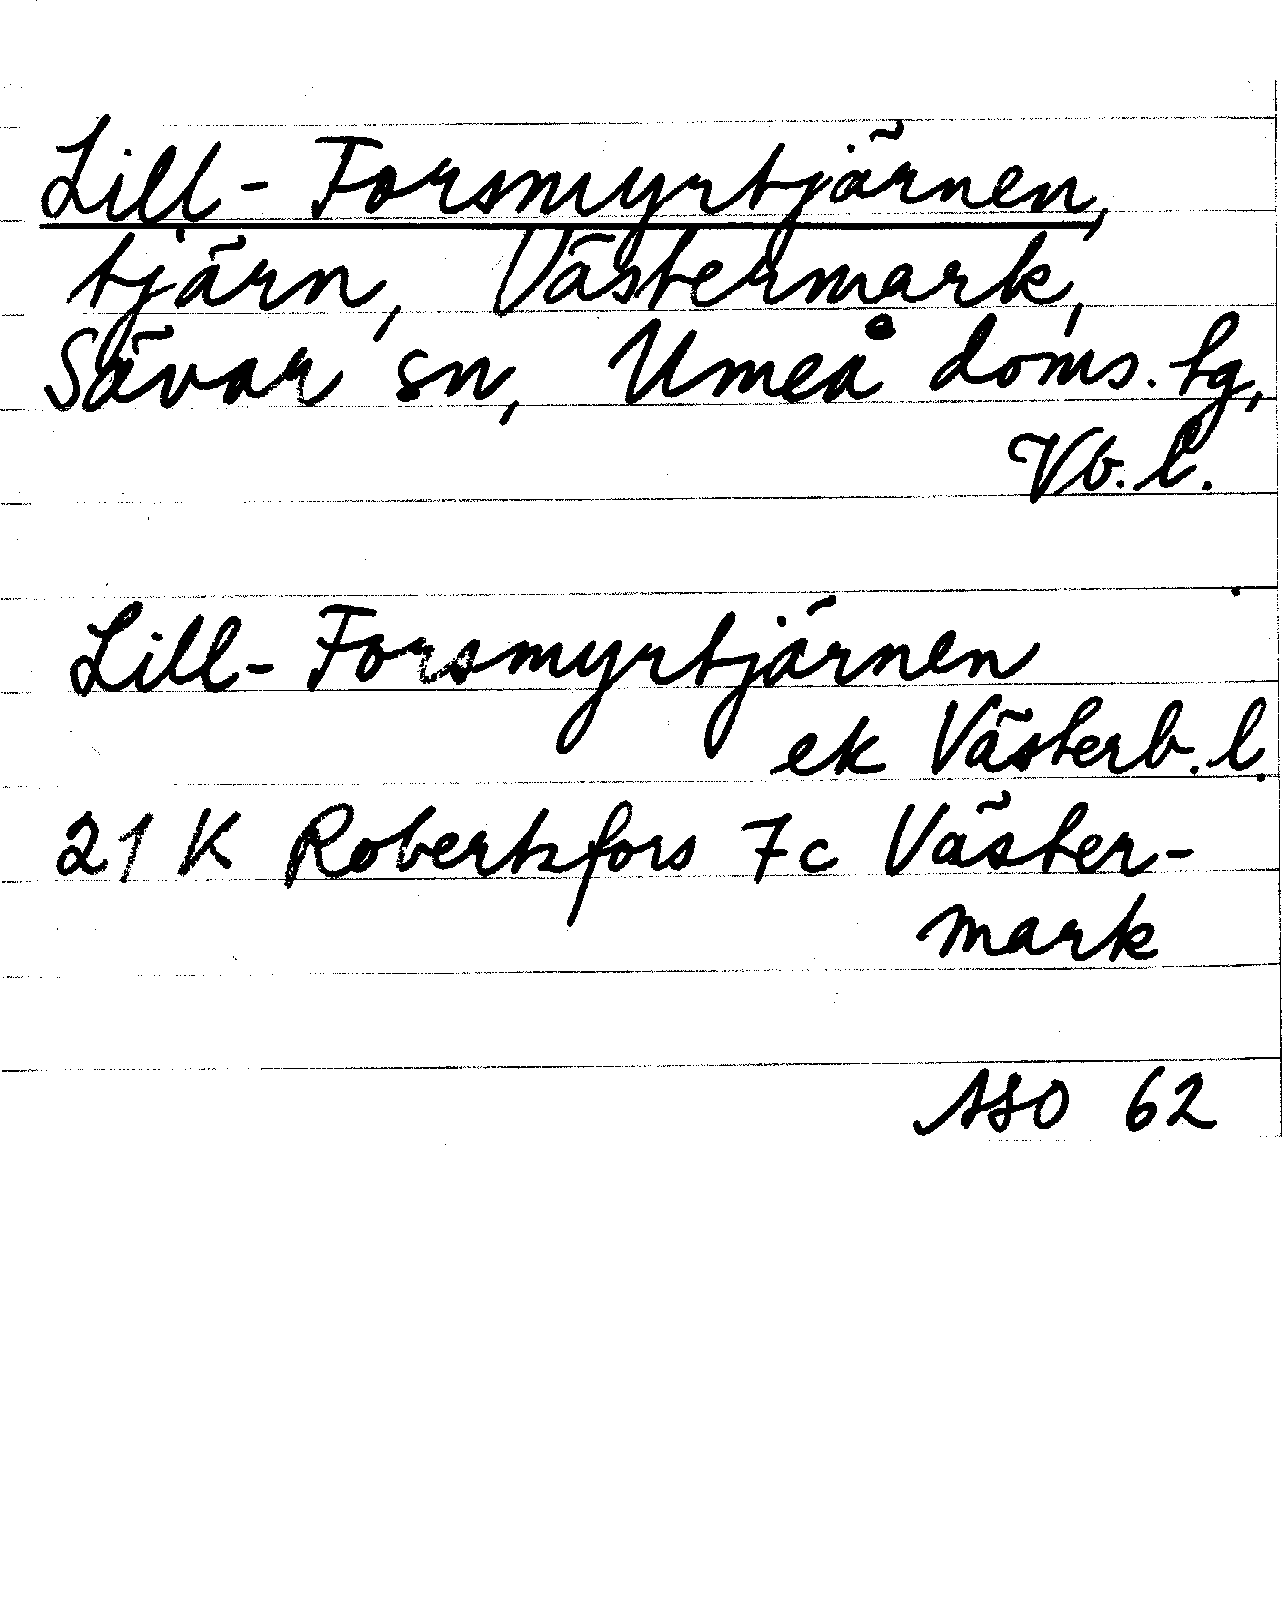 Lill-Forsmyrtjärnen,
tjärn, Västermark,
Sävar sn, Umeå doms. tg,
Vb. l.
Lill-Forsmyrtjärnen
ek Västerb. l.
21 K Robertsfors 7c Väster-
mark
ASO 62